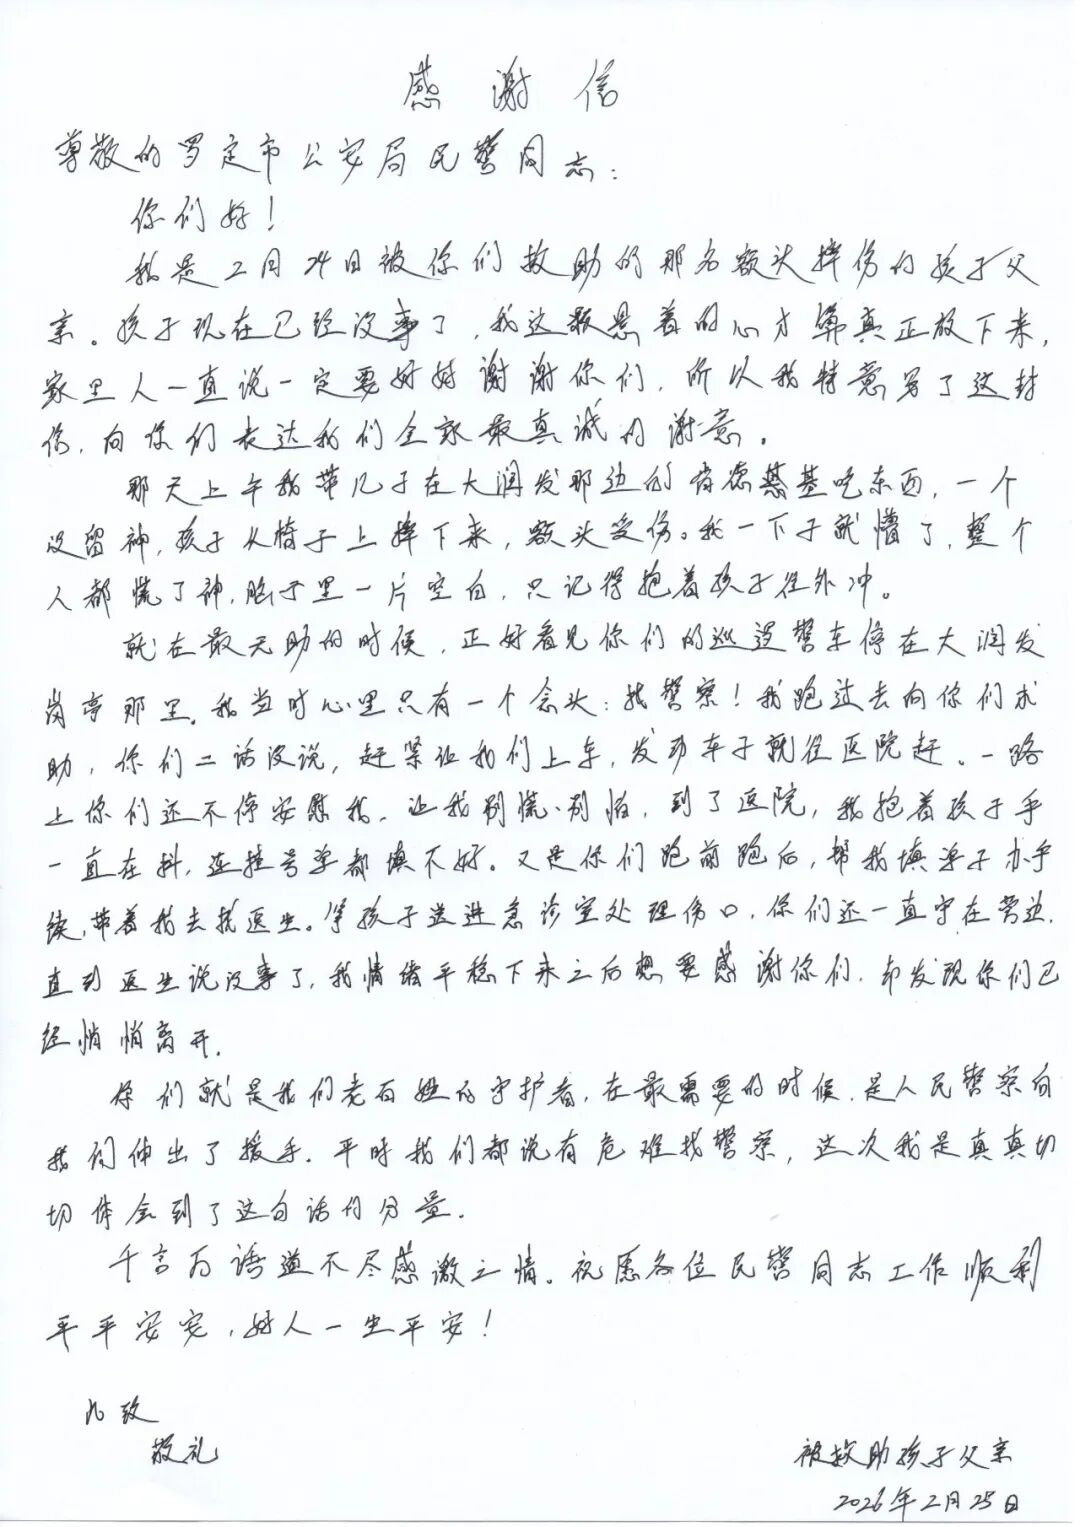 感谢信
尊敬的罗定市公安局民警同志：
你们好！
我是2月24日被你们救助的那名额头摔伤的孩子父
亲。孩子现在已经没事了，我这颗悬着的心才算真正放下来，
家里人一直说一定要好好谢谢你们，所以我特意写了这封
信，向你们表达我们全家最真诚的谢意。
那天上午我带儿子在大润发那边的肯德基吃东西，一个
没留神，孩子从椅子上摔下来，额头受伤。我一下子就懵了，整个
人都慌了神，脑子里一片空白，只记得抱着孩子往外冲。
就在最无助的时候，正好看见你们的巡逻警车停在大润发
岗亭那里。我当时心里只有一个念头：找警察！我跑过去向你们求
助，你们二话没说，赶紧让我们上车，发动车子就往医院赶。一路
上你们还不停安慰我，让我别慌、别怕，到了医院，我抱着孩子手
一直在抖，连挂号单都填不好。又是你们跑前跑后，帮我填单子办手
续，带着我去找医生。等孩子送进急诊室处理伤口，你们还一直守在旁边，
直到医生说没事了，我情绪平稳下来之后想要感谢你们，却发现你们已
经悄悄离开。
你们就是我们老百姓的守护者，在最需要的时候，是人民警察向
我们伸出了援手。平时我们都说有危难找警察，这次我是真真切
切体会到了这句话的分量。
千言万语道不尽感激之情。祝愿各位民警同志工作顺利
平平安安，好人一生平安！
此致
敬礼
被救助孩子父亲
2026年2月25日